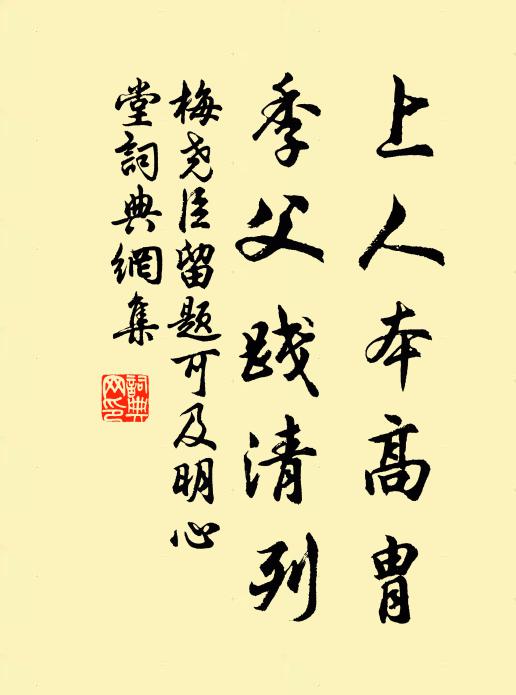 上人本高胄
季父践清列
梅尧臣留题可及明心
堂詞典網集
詞典
网印